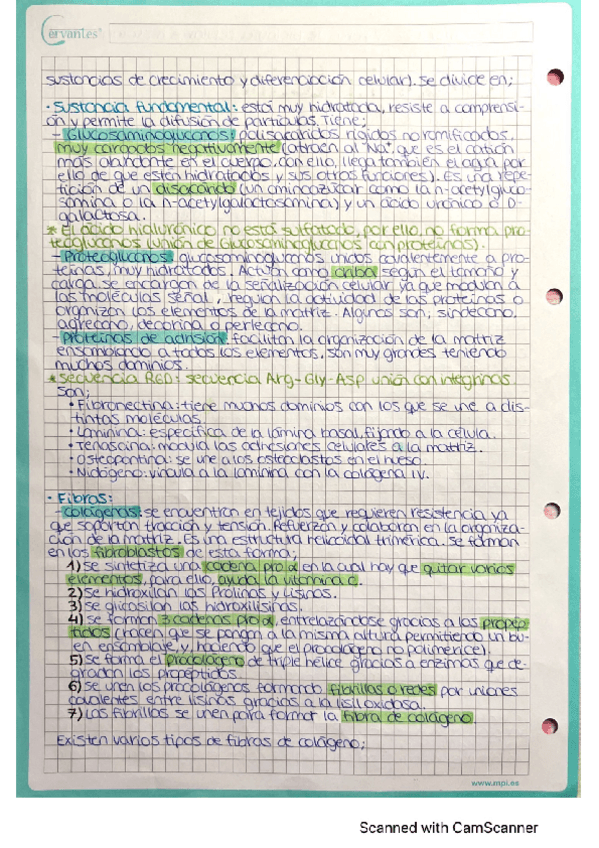 Cervantes
sustancias de crecimiento y diferenciación celular). Se divide en;
· Sustancia fundamental: está muy hidratada, resiste a comprensi-
ón y permite la difusión de partículas. Tiene;
- Glucosaminoglucanos: polisacáridos rígidos no ramificados,
muy cargados negativamente (atraen al Na⁺, que es el catión
más abundante en el cuerpo, con ello, llega también el agua por
ello de que estén hidratados y sus otras funciones). Es una repe-
tición de un disacárido (un aminoazúcar como la n-acetylgluco-
samina o la n-acetylgalactosamina) y un ácido urónico o D-
galactosa.
* El ácido hialurónico no está sulfatado, por ello, no forma pro-
teoglucanos (unión de Glucosaminoglucanos con proteínas).
- Proteoglucanos: glucosaminoglucanos unidos covalentemente a pro-
teínas, muy hidratados. Actúan como criba según el tamaño y
carga, se encargan de la señalización celular ya que modulan a
las moléculas señal, regulan la actividad de las proteínas o
organizan los elementos de la matriz. Algunos son; sindecano,
agrecano, decorina o perlecano.
- Proteínas de adhesión: facilitan la organización de la matriz
ensamblando a todos los elementos, son muy grandes teniendo
muchos dominios.
* Secuencia RGD: secuencia Arg-Gly-Asp unión con integrinas
Son;
· Fibronectina: tiene muchos dominios con los que se une a dis-
tintas moléculas.
· Laminina: específica de la lámina basal, fijando a la célula.
· Tenascina: modula las adhesiones celulares a la matriz.
· Osteopontina: se une a los osteoclastos en el hueso
· Nidógeno: vincula a la laminina con la colágena IV.
· Fibras:
- Colágenas: se encuentran en tejidos que requieren resistencia ya
que soportan tracción y tensión. Refuerzan y colaboran en la organiza-
ción de la matriz. Es una estructura helicoidal trimérica. Se forman
en los fibroblastos de esta forma;
1) Se sintetiza una cadena pro α en la cual hay que quitar varios
elementos, para ello, ayuda la vitamina C.
2) Se hidroxilan las Prolinas y Lisinas.
3) Se glicosilan las hidroxilisinas.
4) Se forman 3 cadenas pro α, entrelazándose gracias a los propép-
tidos (hacen que se pongan a la misma altura permitiendo un bu-
en ensamblaje y, haciendo que el procolágeno no polimerice).
5) Se forma el procolágeno de triple hélice gracias a enzimas que de-
gradan los propéptidos.
6) Se unen los procolágenos formando fibrillas o redes por uniones
covalentes entre lisinas gracias a la lisil oxidasa.
7) Las fibrillas se unen para formar la fibra de colágeno
Existen varios tipos de fibras de colágeno;
www.mpi.es
Scanned with CamScanner